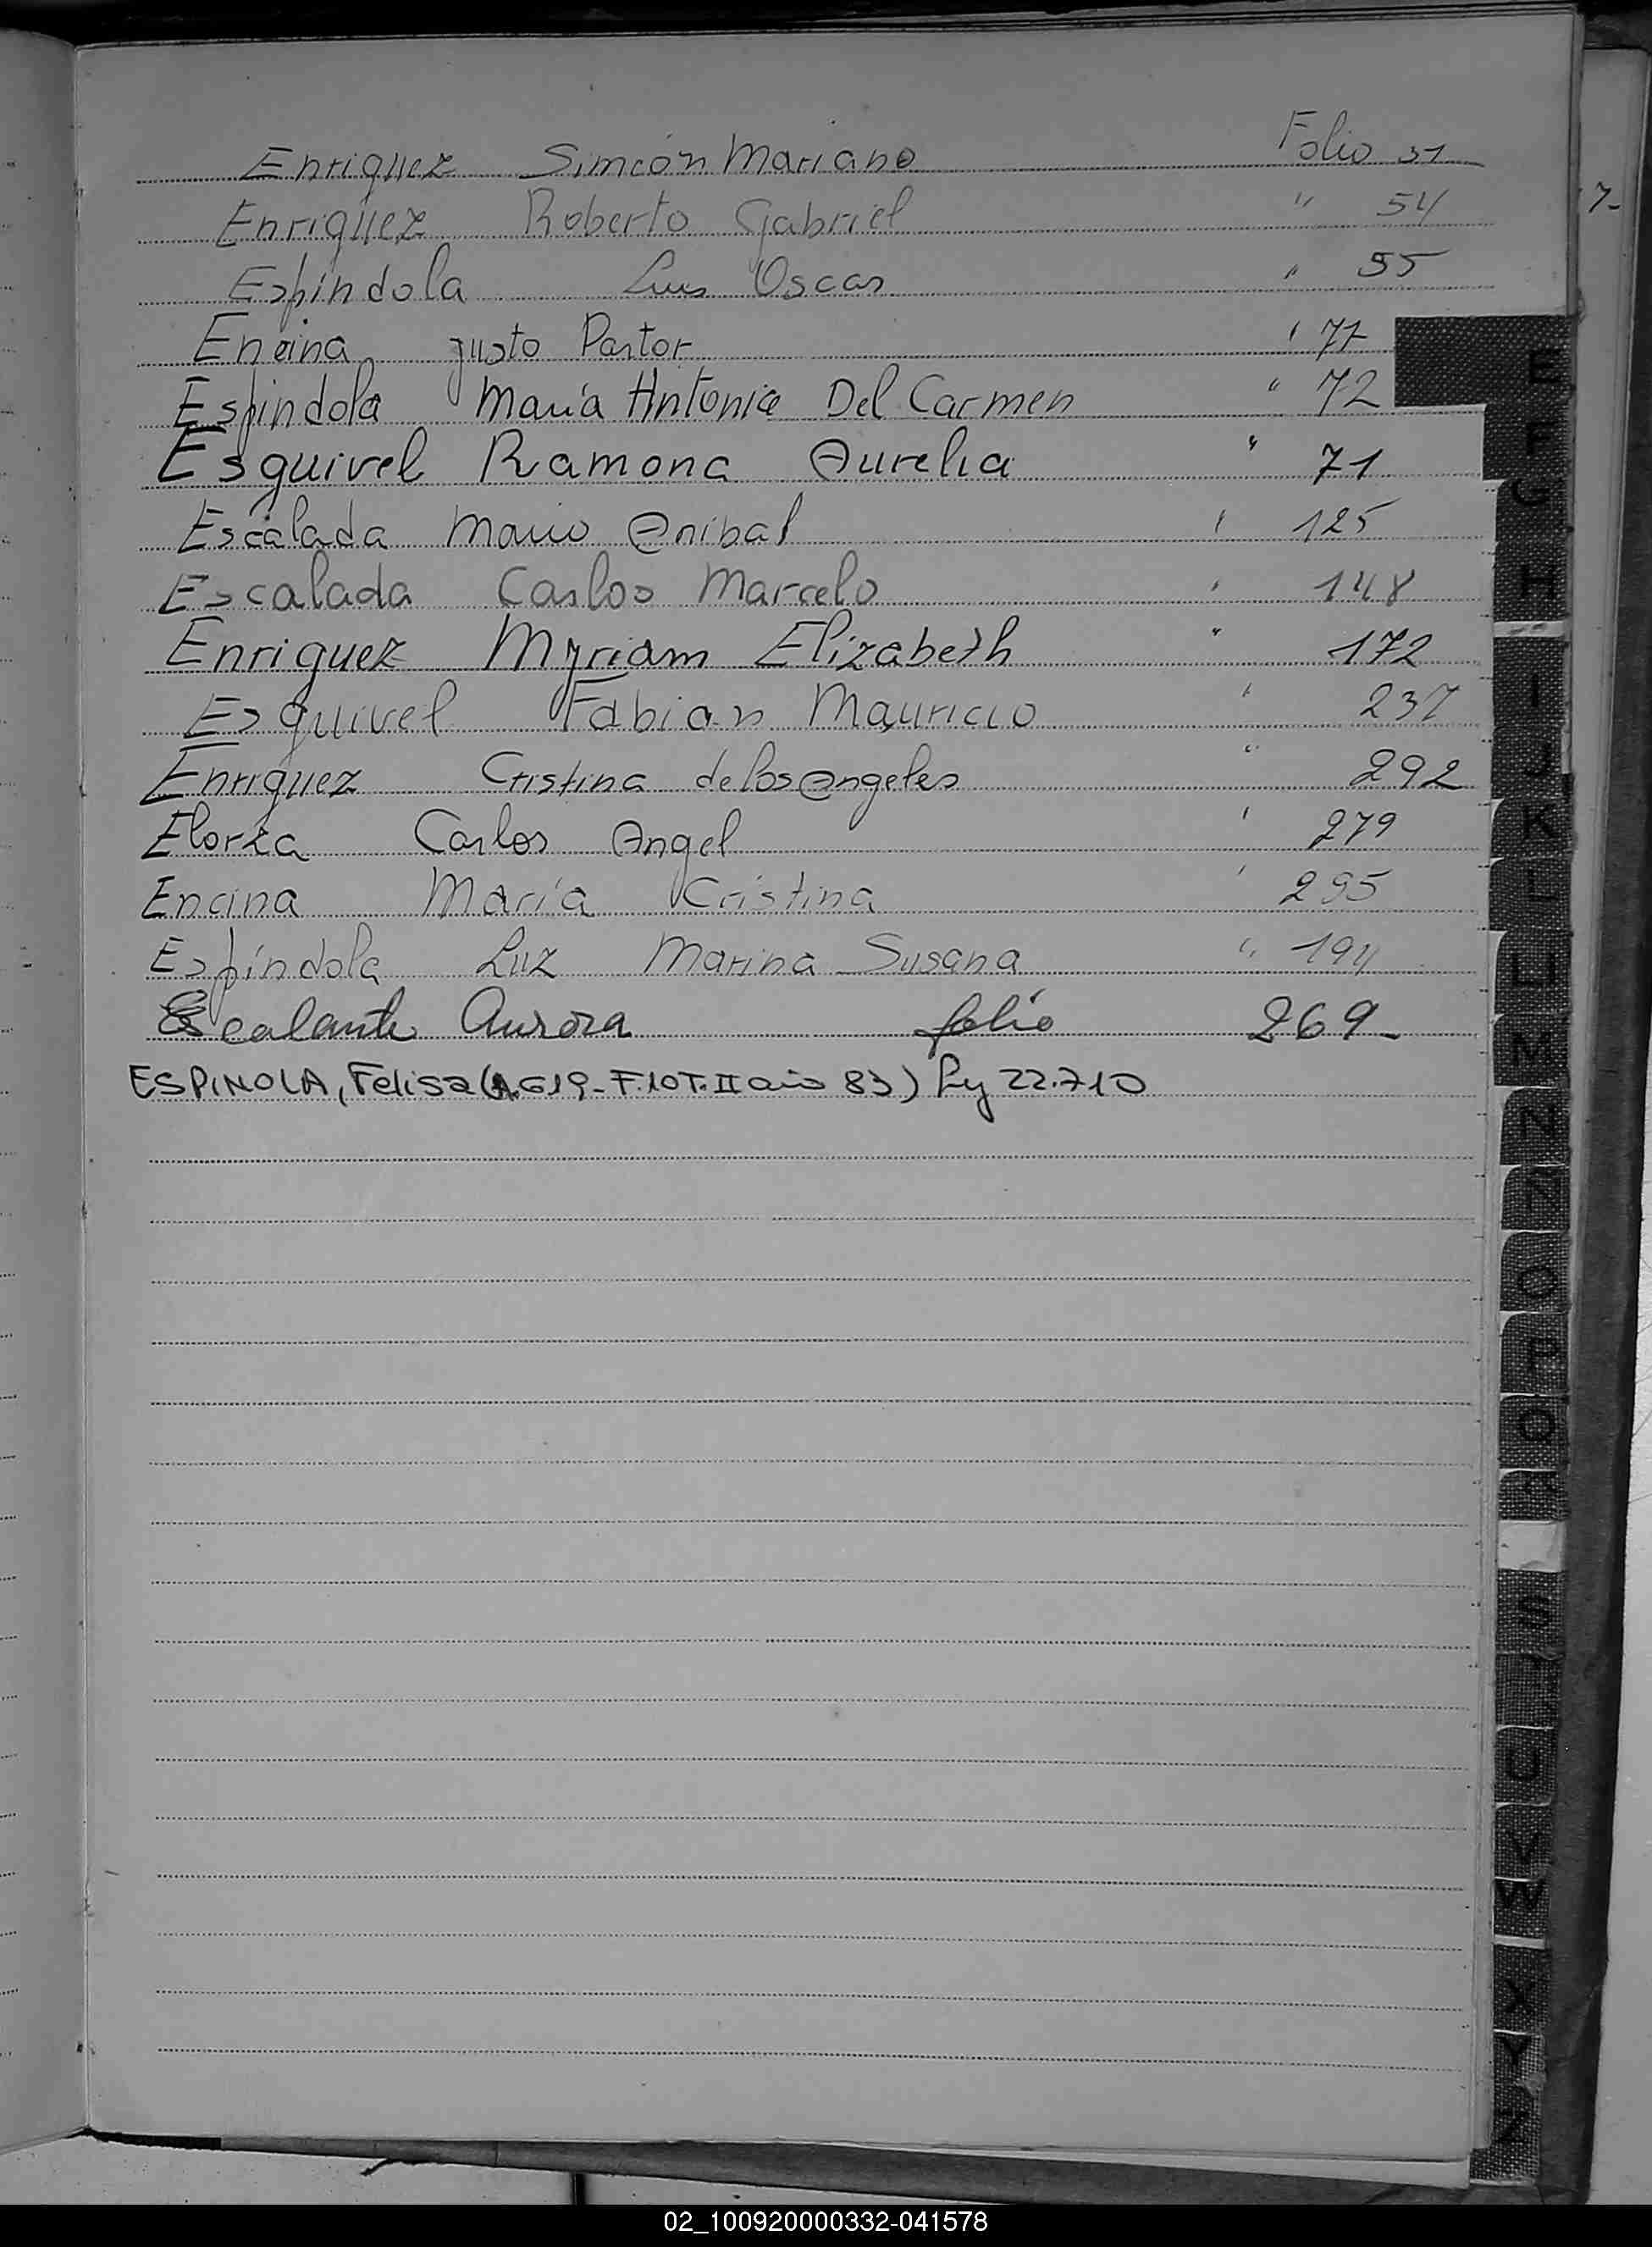 Enriquez Simeón Mariano Folio 31
Enriquez Roberto Gabriel " 54
Espíndola Luis Oscar " 55
Encina Justo Pastor " 77
Espindola María Antonia Del Carmen " 72
Esquivel Ramona Aurelia " 71
Escalada Mario Anibal " 125
Escalada Carlos Marcelo " 148
Enriquez Myriam Elizabeth " 172
Esquivel Fabian Mauricio " 237
Enriquez Cristina de los Angeles " 292
Elorza Carlos Angel " 279
Encina María Cristina " 295
Espíndola Luz Marina Susana " 194
Escalante Aurora folio 269-
ESPINOLA, Felisa (A.619-F.10T.II año 83) Ley 22.710
7-
E
F
G
H
I
J
K
L
Ll
M
N
Ñ
O
P
Q
S
U
V
W
X
Y
Z
02_100920000332-041578